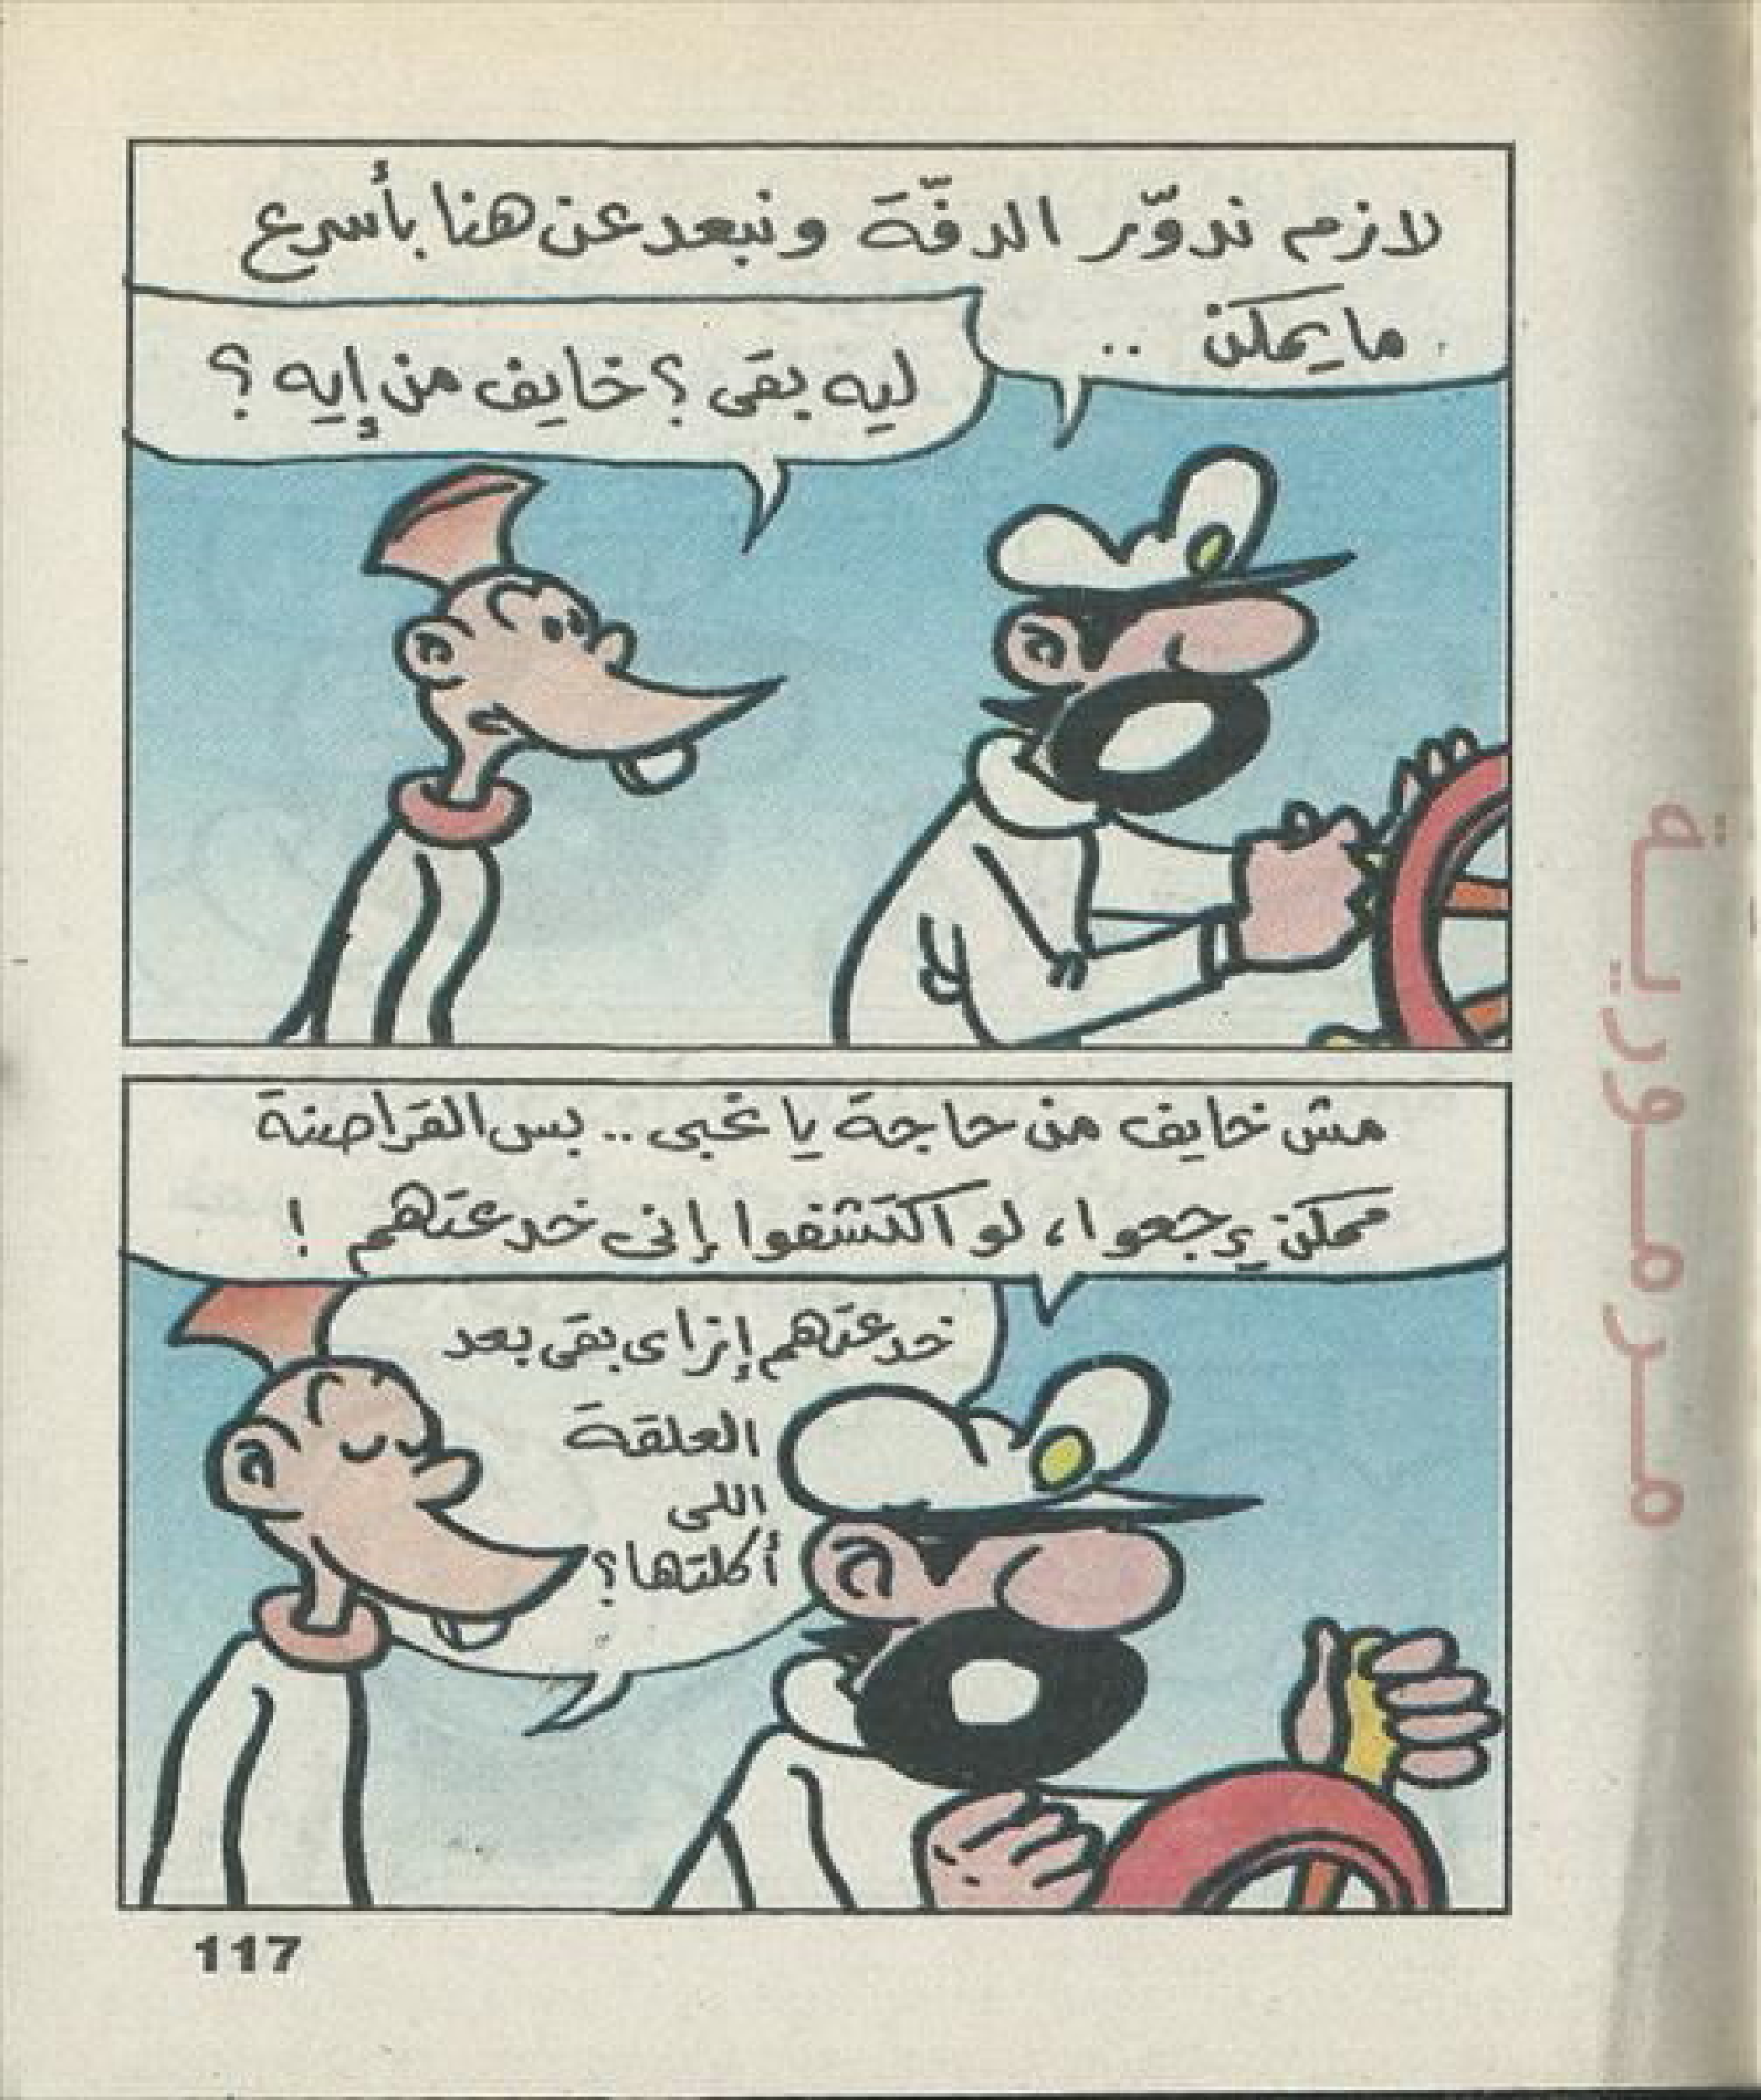 لازم ندوّر الدفّة ونبعد عن هنا بأسرع
ما يمكن ..
ليه بقى؟ خايف من إيه؟
مش خايف من حاجة يا غبى .. بس القراصنة
ممكن يرجعوا، لو اكتشفوا إنى خدعتهم !
خدعتهم إزاى بقى بعد
العلقة
اللى
أكلتها؟
117
مرمورية